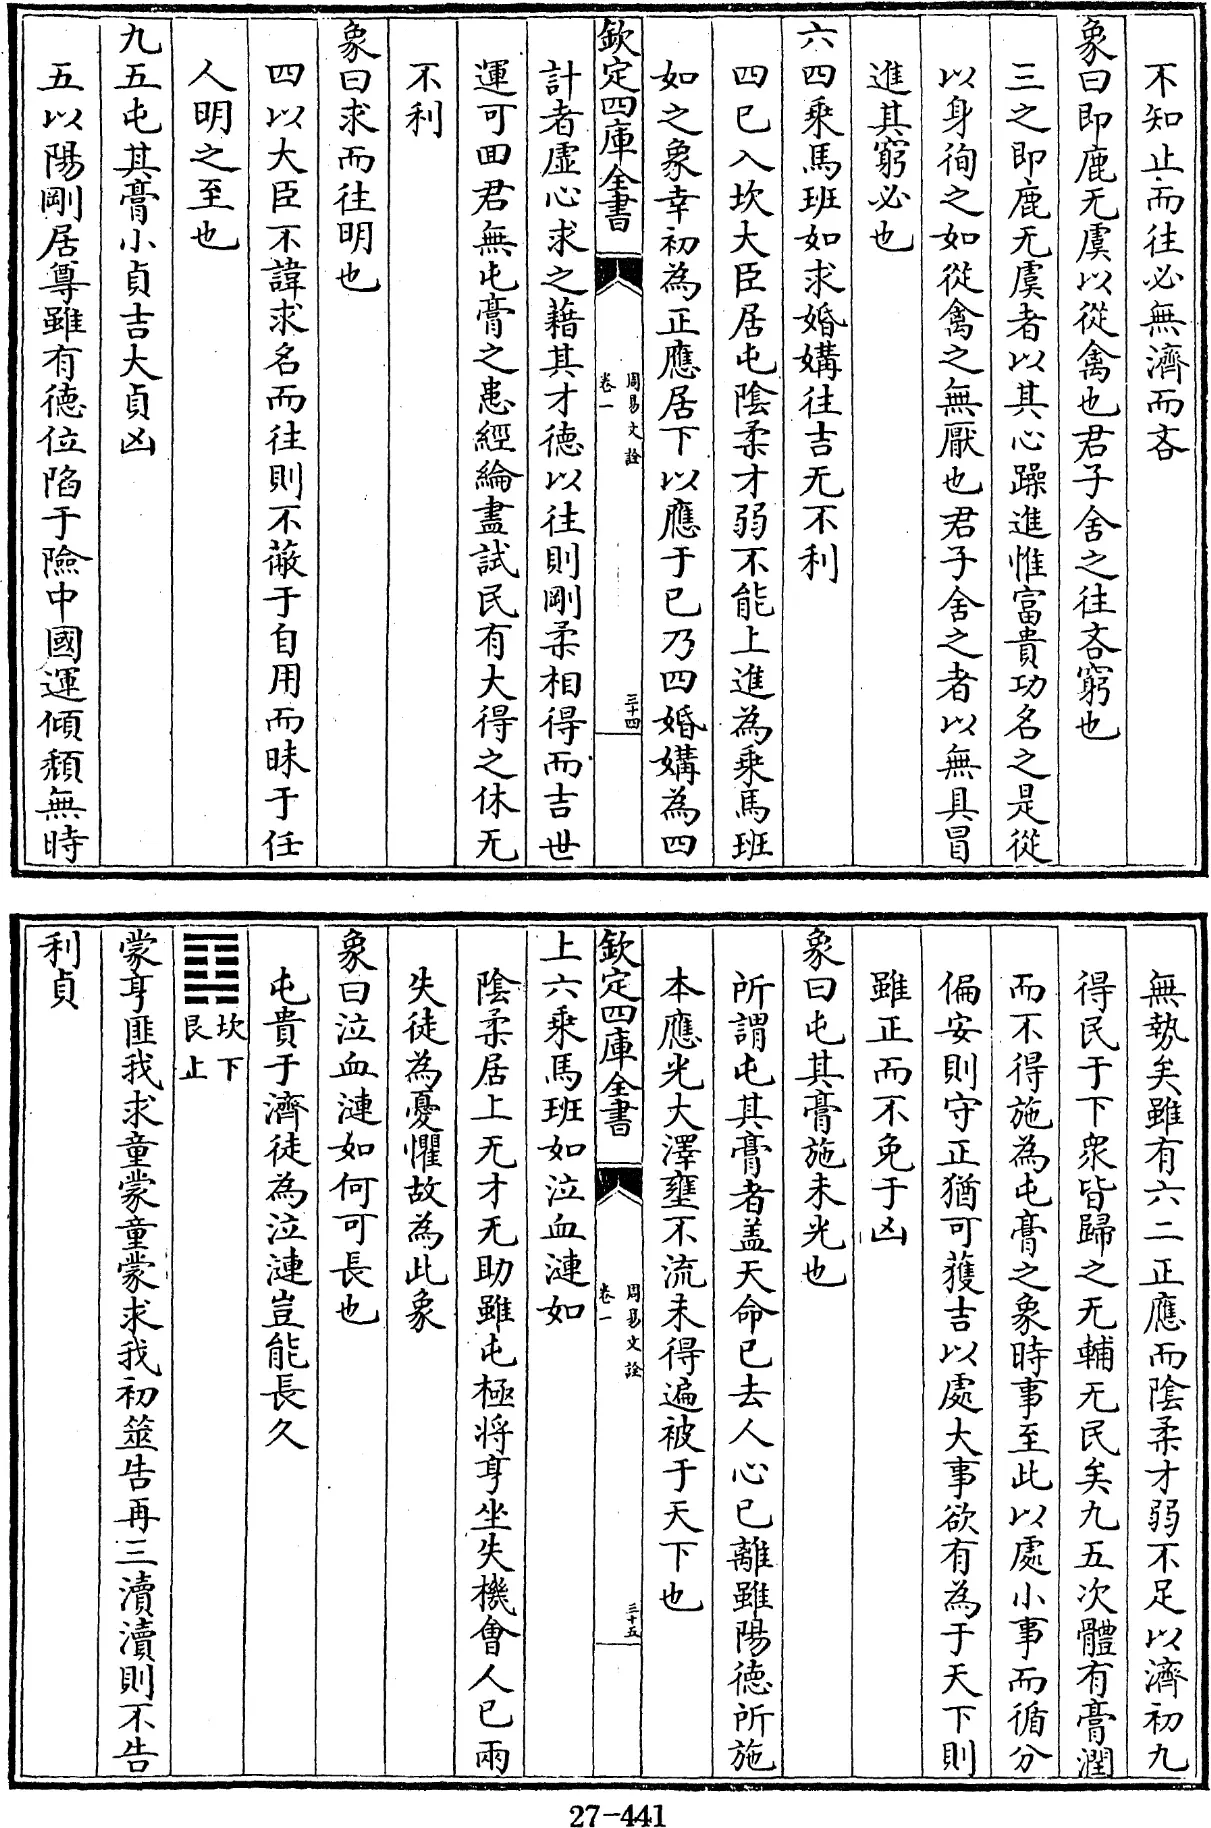 不知止而往必無濟而吝
象曰即鹿无虞以從禽也君子舍之往吝窮也
三之即鹿无虞者以其心躁進惟富貴功名之是從
以身徇之如從禽之無厭也君子舍之者以無具冒
進其窮必也
六四乘馬班如求婚媾往吉无不利
四已入坎大臣居屯陰柔才弱不能上進為乘馬班
如之象幸初為正應居下以應于已乃四婚媾為四
欽定四庫全書
周易文詮
卷一
三十四
計者虛心求之藉其才德以往則剛柔相得而吉世
運可回君無屯膏之患經綸盡試民有大得之休无
不利
象曰求而往明也
四以大臣不諱求名而往則不蔽于自用而昧于任
人明之至也
九五屯其膏小貞吉大貞凶
五以陽剛居尊雖有德位陷于險中國運傾頹無時
無勢矣雖有六二正應而陰柔才弱不足以濟初九
得民于下衆皆歸之无輔无民矣九五次體有膏潤
而不得施為屯膏之象時事至此以處小事而循分
偏安則守正猶可獲吉以處大事欲有為于天下則
雖正而不免于凶
象曰屯其膏施未光也
所謂屯其膏者盖天命已去人心已離雖陽德所施
本應光大澤壅不流未得遍被于天下也
欽定四庫全書
周易文詮
卷一
三十五
上六乘馬班如泣血漣如
陰柔居上无才无助雖屯極將亨坐失機會人已兩
失徒為憂懼故為此象
象曰泣血漣如何可長也
屯貴于濟徒為泣漣豈能長久
坎下
艮上
蒙亨匪我求童蒙童蒙求我初筮告再三瀆瀆則不告
利貞
27-441